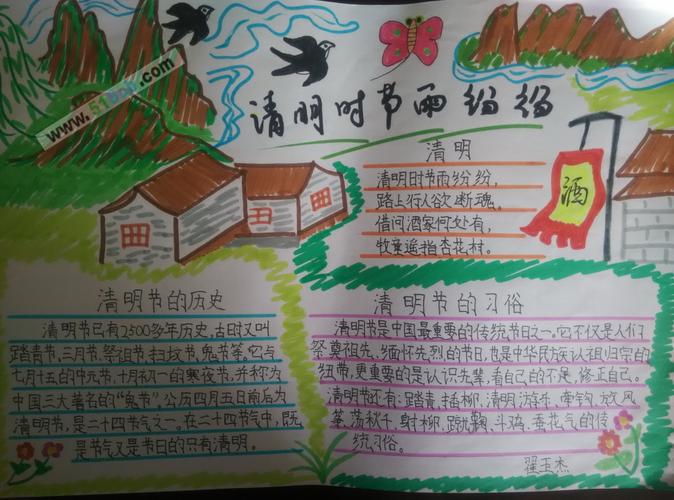 www.51bhb.com
清明时节雨纷纷
清明
清明时节雨纷纷,
路上行人欲断魂。
借问酒家何处有,
牧童遥指杏花村。
酒
清明节的历史
清明节已有2500多年历史,古时又叫
踏青节、三月节、祭祖节、扫坟节、鬼节等。它与
七月十五的中元节、十月初一的寒夜节,并称为
中国三大著名的“鬼节”。公历四月五日前后为
清明节,是二十四节气之一。在二十四节气中,既
是节气又是节日的只有清明。
清明节的习俗
清明节是中国最重要的传统节日之一。它不仅是人们
祭奠祖先、缅怀先烈的节日,也是中华民族认祖归宗的
纽带,更重要的是认识先辈,看自己的不足,修正自己。
清明节还有:踏青、插柳、清明游乐、牵钩、放风
筝、荡秋千、射柳、蹴鞠、斗鸡、卖花气的传
统习俗。
翟玉杰